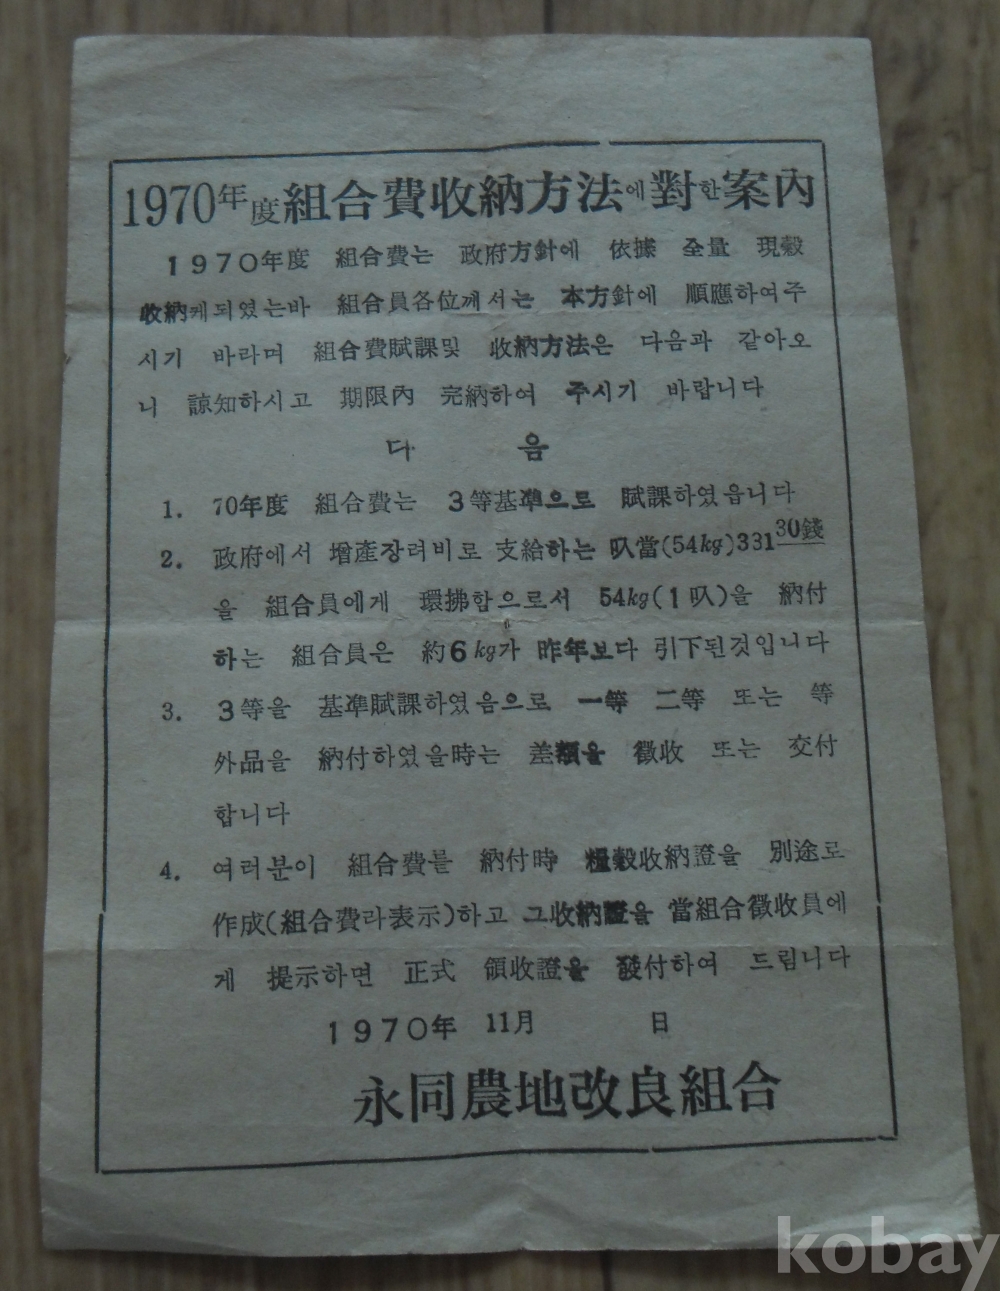 1970年度組合費收納方法에對한案內
1970年度 組合費는 政府方針에 依據 全量 現穀
收納케되였는바 組合員各位께서는 本方針에 順應하여주
시기 바라며 組合費賦課및 收納方法은 다음과 같아오
니 諒知하시고 期限內 完納하여 주시기 바랍니다
다 음
1. 70年度 組合費는 3等基準으로 賦課하였읍니다
2. 政府에서 增產장려비로 支給하는 叺當(54kg)331 30錢
을 組合員에게 環拂함으로서 54kg(1叺)을 納付
하는 組合員은 約6kg가 昨年보다 引下된것입니다
3. 3等을 基準賦課하였음으로 一等 二等 또는 等
外品을 納付하였을時는 差額을 徵收 또는 交付
합니다
4. 여러분이 組合費를 納付時 糧穀收納證을 別途로
作成(組合費라表示)하고 그收納證을 當組合徵收員에
게 提示하면 正式 領收證을 發付하여 드립니다
1970年 11月 日
永同農地改良組合
kobay